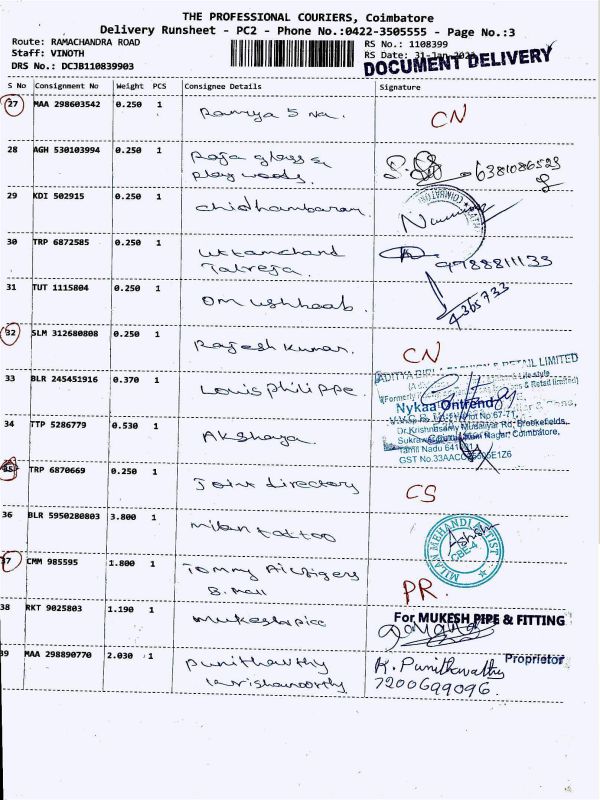 THE PROFESSIONAL COURIERS, Coimbatore
Delivery Runsheet - PC2 - Phone No.:0422-3505555 - Page No.:3
Route: RAMACHANDRA ROAD
Staff: VINOTH
DRS No.: DCJB110839903
RS No.: 1108399
RS Date: 31-Jan-2023
DOCUMENT DELIVERY
S No Consignment No Weight PCS Consignee Details Signature
27 MAA 298603542 0.250 1 Ramya S CN
28 AGH 530103994 0.250 1 Raja glass &
plywoods. 6381086523
29 KDI 502915 0.250 1 Chidhambaram.
30 TRP 6872585 0.250 1 Uttamchand
Talreja. 9788811133
31 TUT 1115804 0.250 1 Om 4365733
32 SLM 312680808 0.250 1 Rajesh Kumar. CN
ADITYA FASHION & RETAIL LIMITED
33 BLR 245451916 0.370 1 Louis Philippe.
Nykaa Ontrend
34 TTP 5286779 0.530 1 Akshaya.
Dr.Krishnasamy Mudaliyar Rd, Brookefields,
Coimbatore,
Tamil Nadu
35 TRP 6870669 0.250 1 Joint directory CS
36 BLR 5950280803 3.800 1 Milan tattoo
MILAN MEHANDI ARTIST
CBE-4
37 CMM 985595 1.800 1 Tommy Hilfigers
B. Mall PR.
38 RKT 9025803 1.190 1 Mukesh pipe
For MUKESH PIPE & FITTING
Proprietor
39 MAA 298890770 2.030 1 Punithavathy
Krishnamoorthy
K. Punithavathy
7200699096.